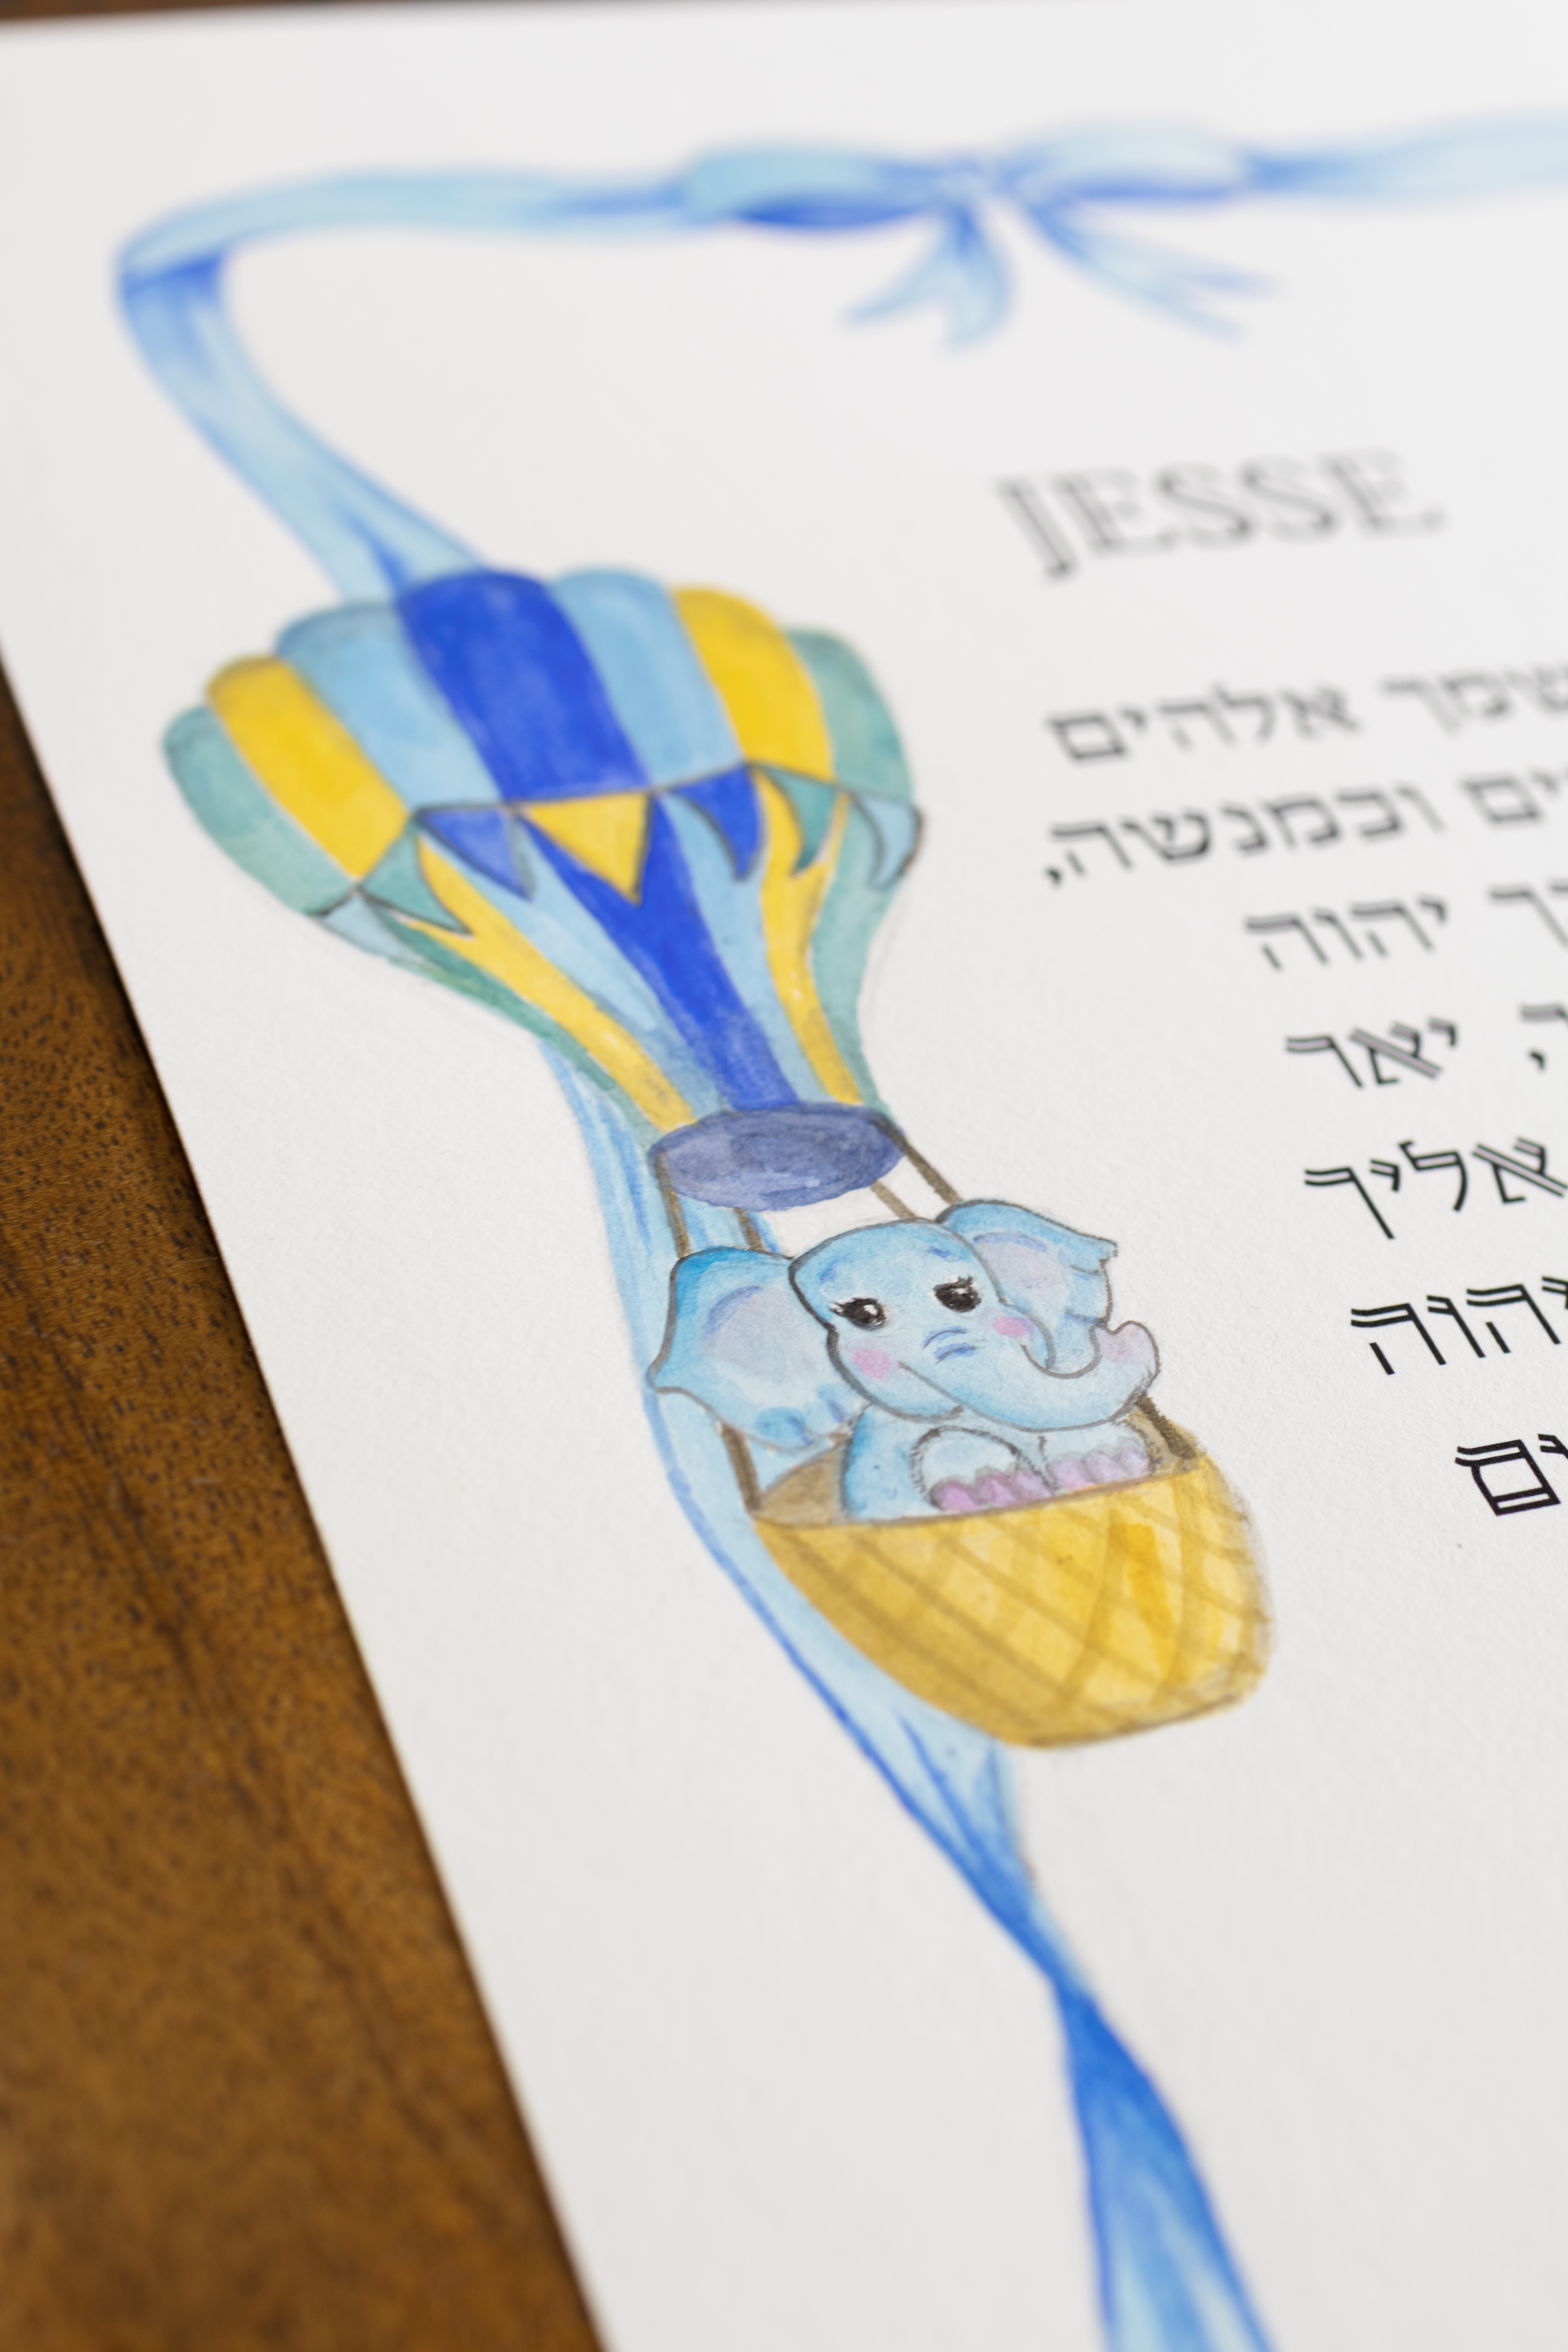 JESSE
שמך אלהים
ים וכמנשה,
ך יהוה
, יאר
אליך
יהוה
ים